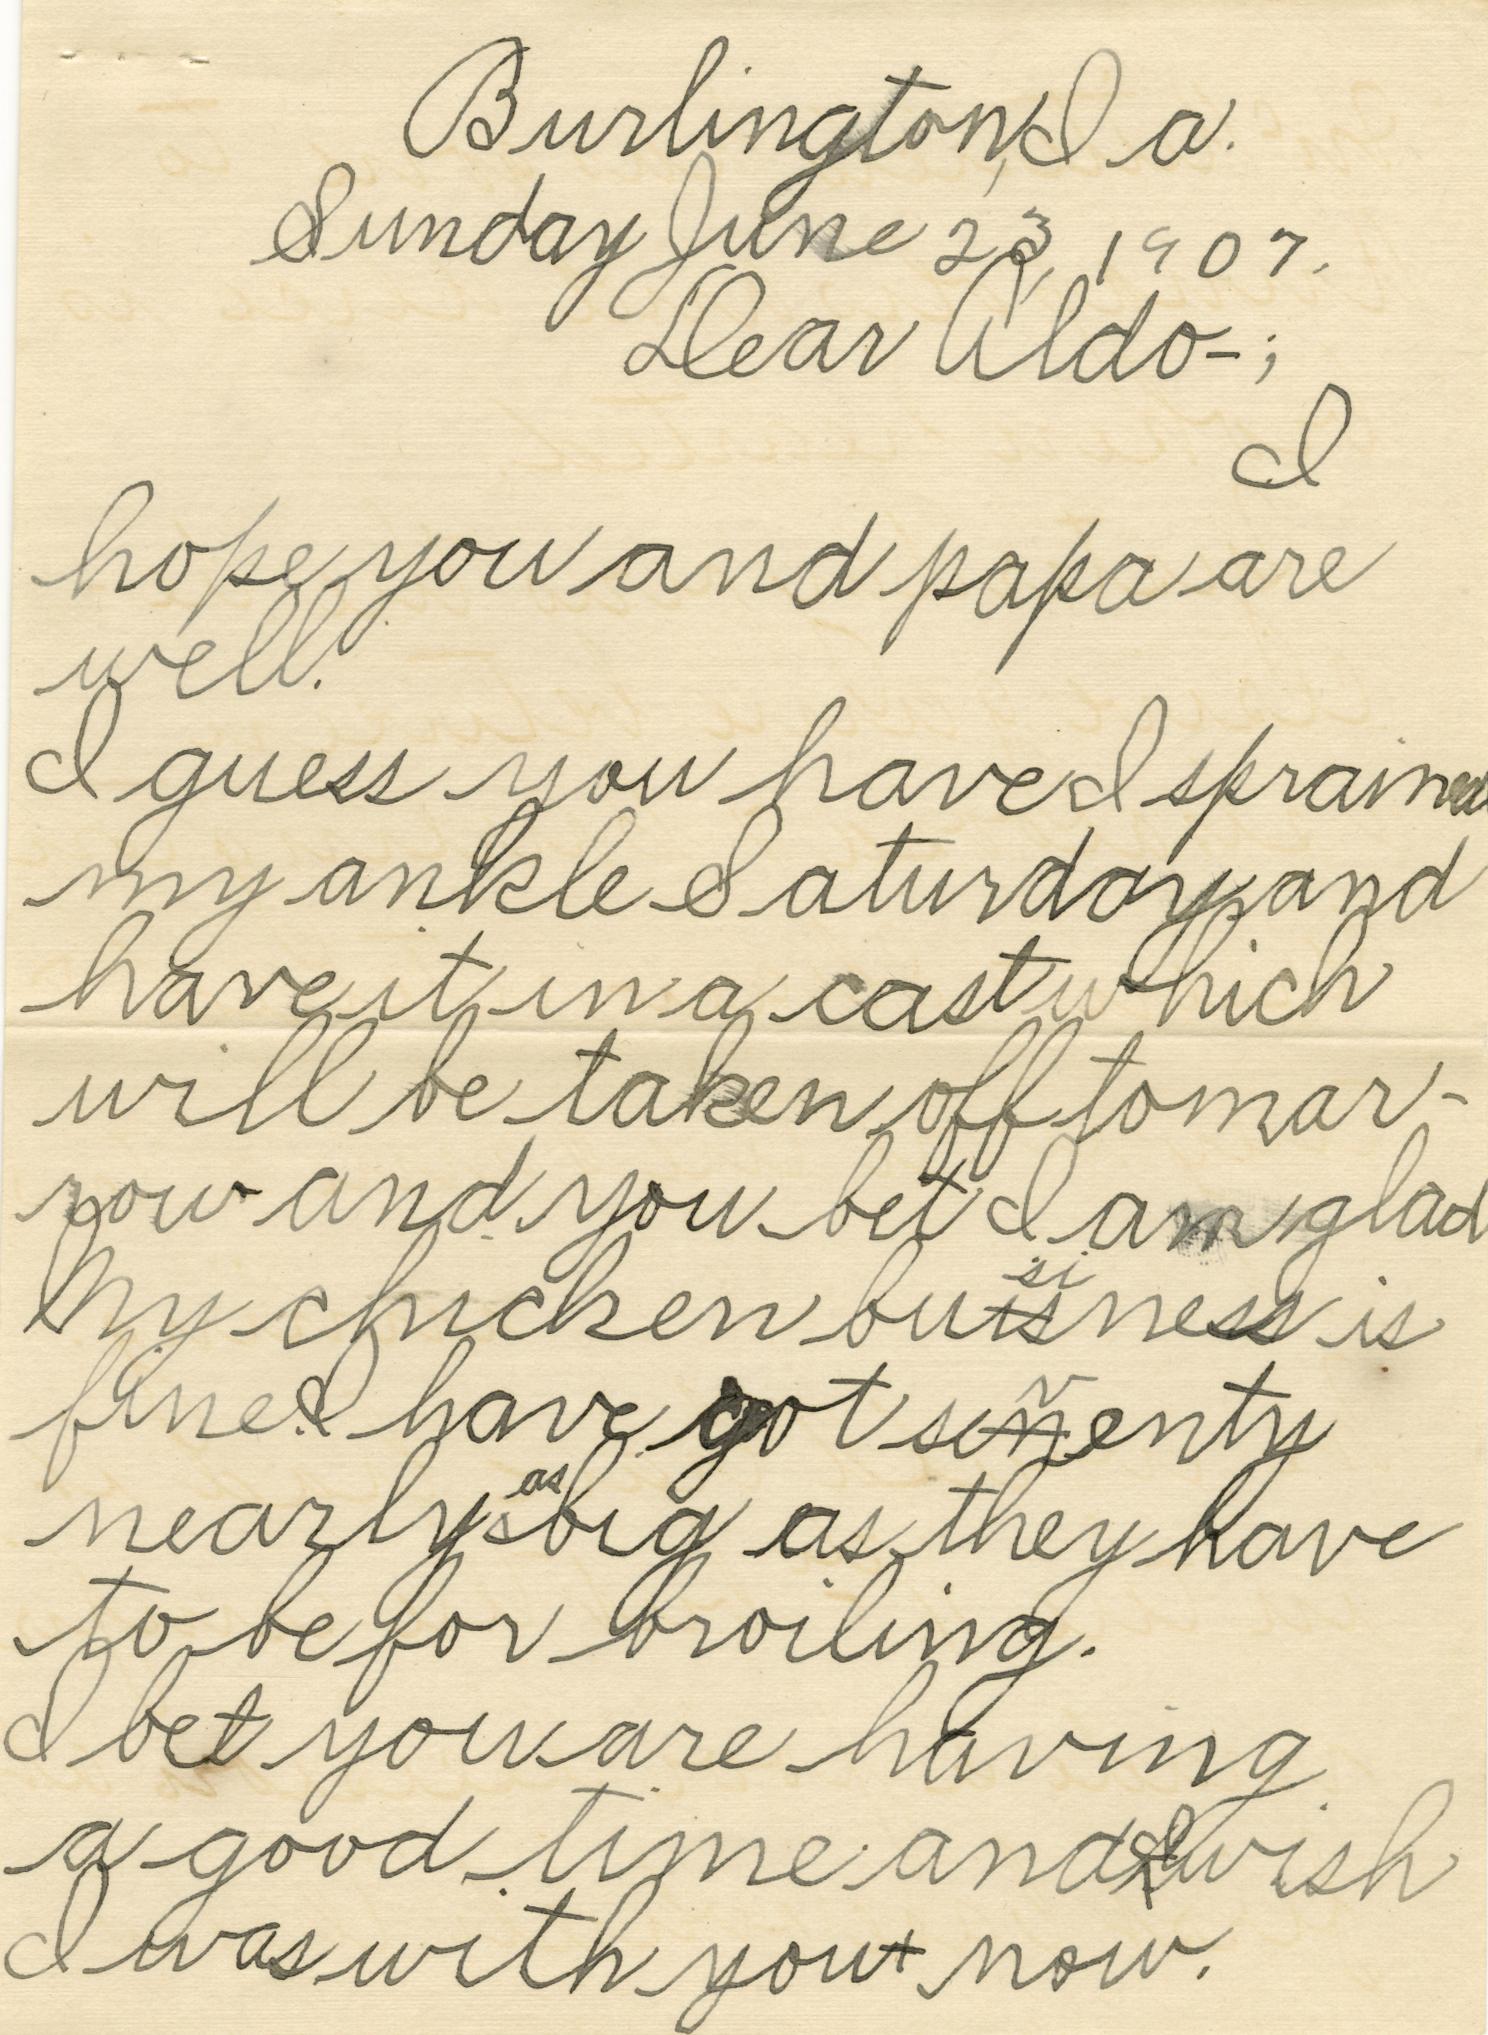 Burlington, Ia.
Sunday June 23, 1907.
Dear Aldo-;
I
hope you and papa are
well.
I guess you have I sprained
my ankle Saturday, and
have it in a cast which
will be taken off tomar-
row and you bet I am glad
My chicken business is
fine. I have got seventy
nearly as big as they have
to be for broiling.
I bet you are having
a good time and I wish
I was with you now.